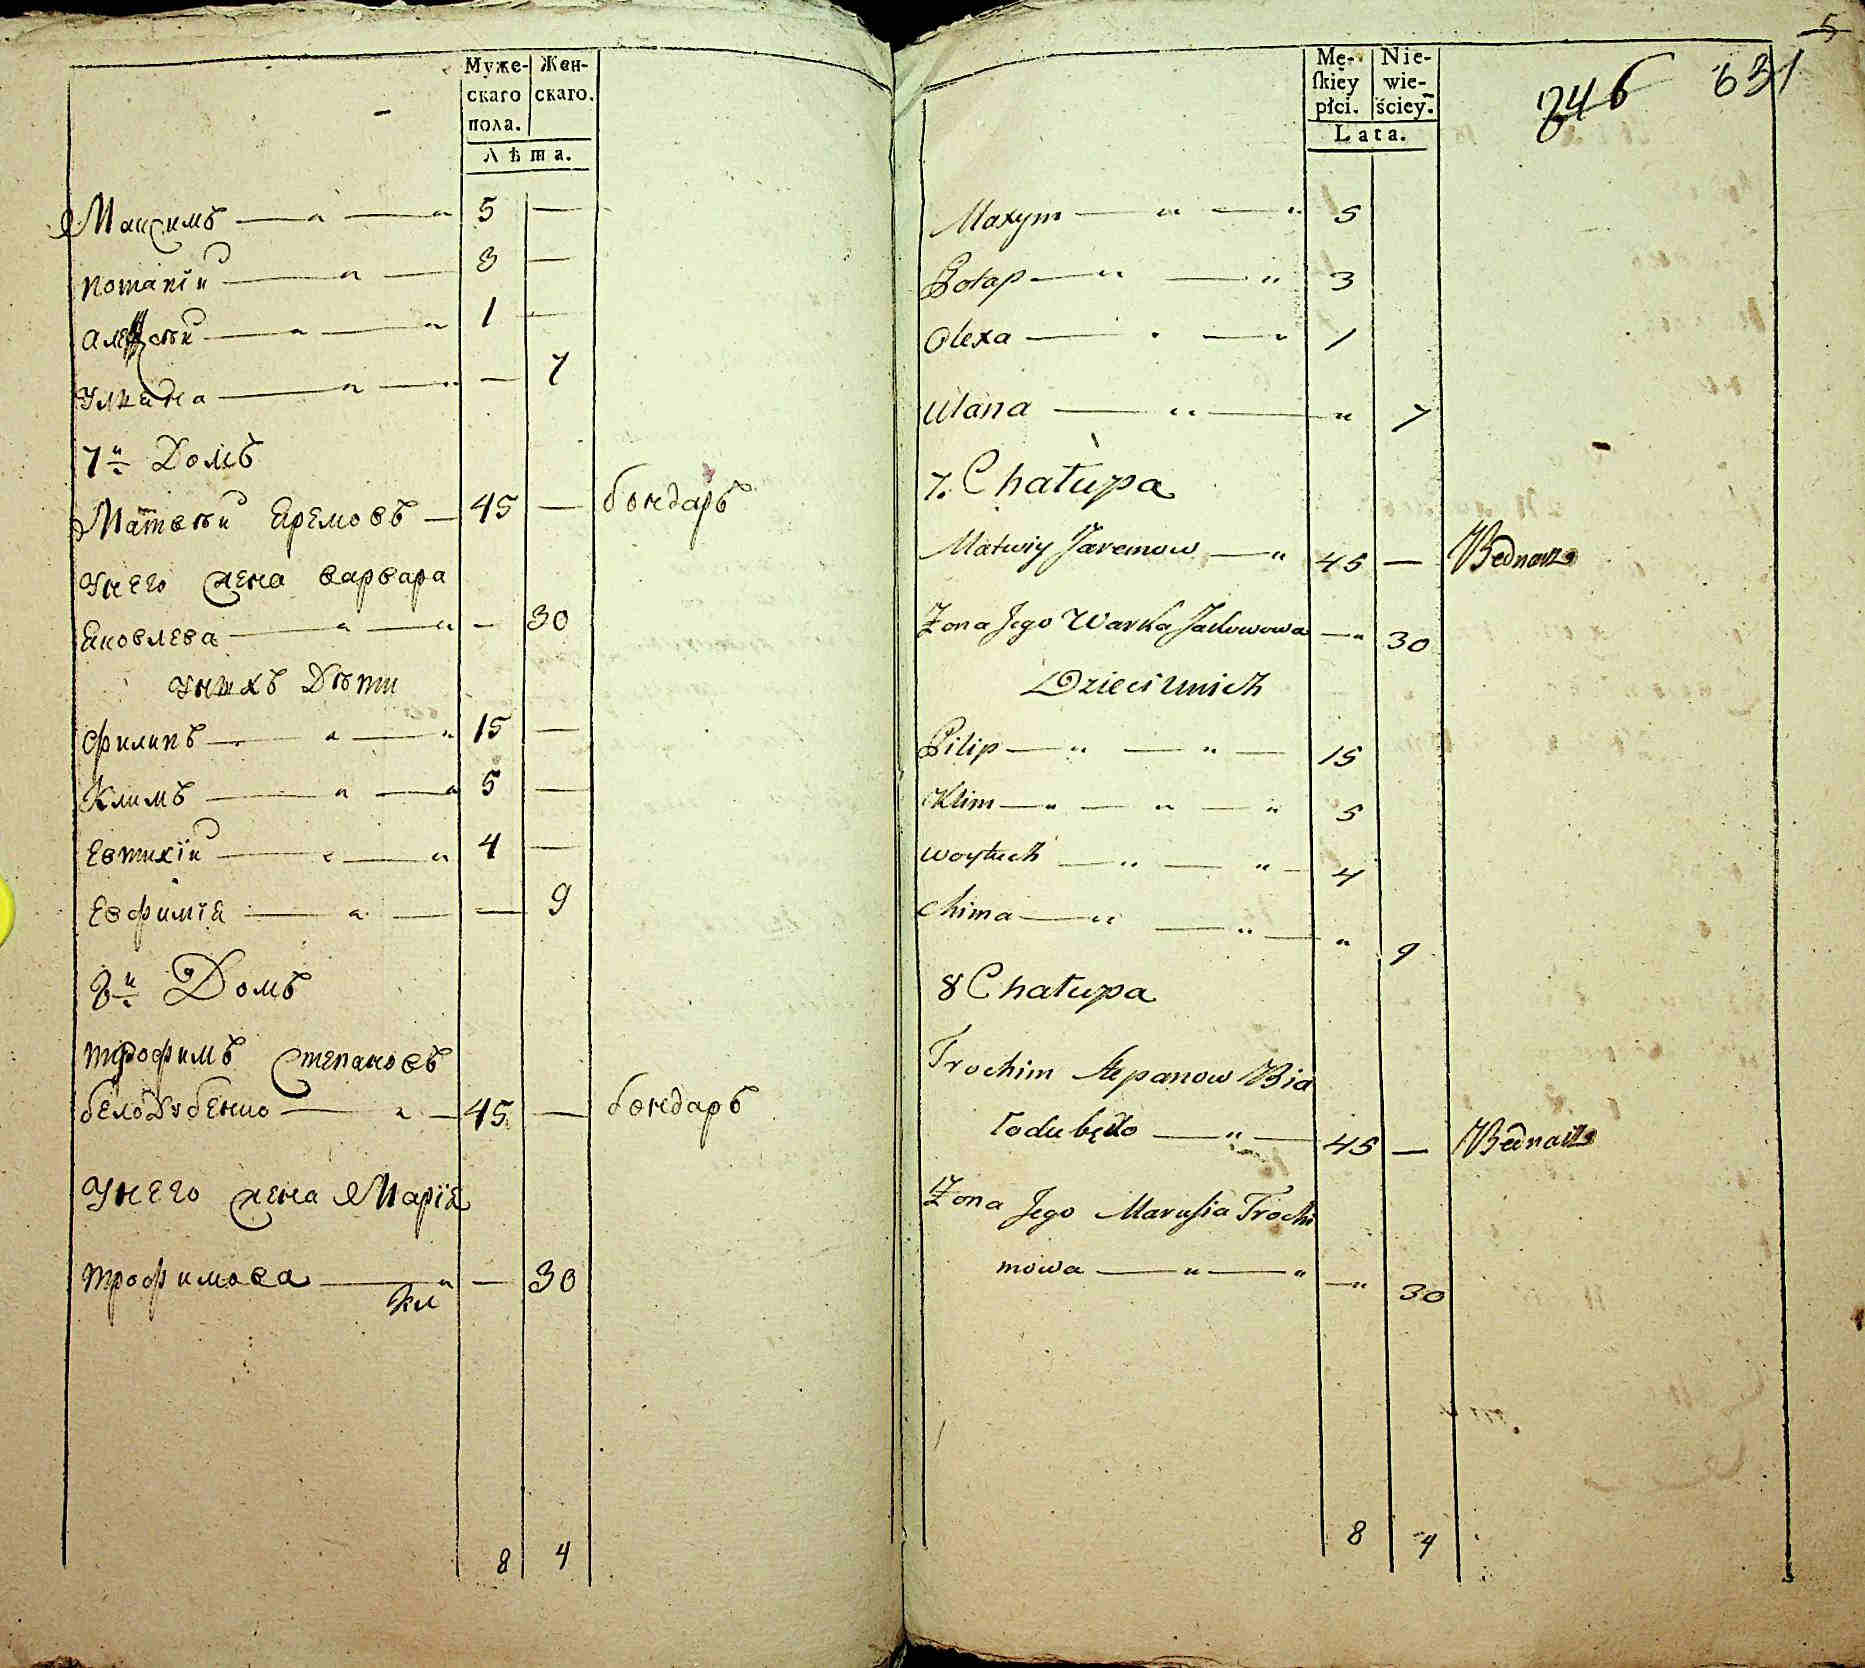 Муже- Жен-
скаго скаго.
пола.
Лѣта.
Максимъ — „ — „ 5 —
Потапіи — „ — 3 —
Алексѣи — „ — „ 1 —
Ульяна — „ — „ — 7
7и Домъ
Матвѣи Яремовъ — 45 — бондаръ
Унего жена варвара
Яковлева — „ — „ — 30
Унихъ Дѣти
Филипъ — „ — „ 15 —
Климъ — „ — „ 5 —
Евтихїи — „ — „ 4 —
Евфимїя — „ — — 9
8и Домъ
трофимъ Степановъ
белодубенко — „ — 45 — бондаръ
Унего жена Марїя
трофимова — „ — 30
8 4
5
Mę- Nie-
ſkiey wie-
płci. ściey.
Lata.
246 631
Maxym — „ — „ 5
Potap — „ — „ 3
Olexa — „ — „ 1
Ulana — „ — „ 7
7. Chałupa
Matwiy Jaremow — „ 45 — Bednarz
Zona Jego Warka Jackowowa — „ 30
Dzieci unich
Pilip — „ — „ — 15
Klim — „ — „ — „ 5
Woytuch — „ — „ — 4
Chima — „ — „ — „ 9
8 Chałupa
Trochim Stepanow Bia
łodubęko — „ — 45 — Bednarz
Zona Jego Marusia Trochi
mowa — „ — „ — „ 30
8 4